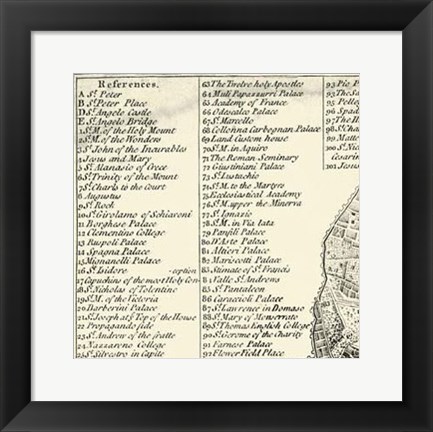 References.
A St. Peter
B St. Peter Place
D St. Angelo Castle
E St. Angelo Bridge
1 St. M. of the Holy Mount
2 St. M. of the Wonders
3 St. John of the Incurables
4 Jesus and Mary
5 St. Atanasio of Grece
6 St. Trinity of the Mount
7 St. Charls to the Court
8 Augustus
9 St. Rock
10 St. Girolamo of Schiaroni
11 Borghese Palace
12 Clementino College
13 Ruspoli Palace
14 Spagna Palace
15 Mignanelli Palace
16 St. Isidore -ception
17 Capuchins of the most Holy Con
18 St. Nicholas of Tolentino
19 St. M. of the Victoria
20 Barberini Palace
21 St. Joseph at ye Top of the House
22 Propagando fide
23 St. Andrew of the fratte
24 Nazzareno College
25 St. Silvestro in Capite
63 The Twelve holy Apostles
64 Muti Papazzurri Palace
65 Academy of France
66 Odescales Palace
67 St. Marcello
68 Collohna Carbegnan Palace
69 Land Custom house
70 St. M. in Aquiro
71 The Roman Seminary
72 Giustiniani Palace
73 St. Eustachio
74 St. M. to the Martyrs
75 Ecclesiastical Academy
76 St. M. upper the Minerva
77 St. Ignazio
78 St. M. in Via lata
79 Panfili Palace
80 D'Aste Palace
81 Altieri Palace
82 Mariscotti Palace
83 Stimate of St. Francis
84 Valle St. Andrens
85 St. Pantaleon
86 Caraccioli Palace
87 St. Lawrence in Domaso
88 St. Mary of Monserrato
89 St. Thomas English College
90 St. Gerome of the Charity
91 Farnese Palace
92 Flower Field Place
93 Pio P
94 The Sa
95 Pelleg
96 Spad
97 The H
98 St. Cha
99 Matte
100 St. Nic
Cesarin
101 Jesus